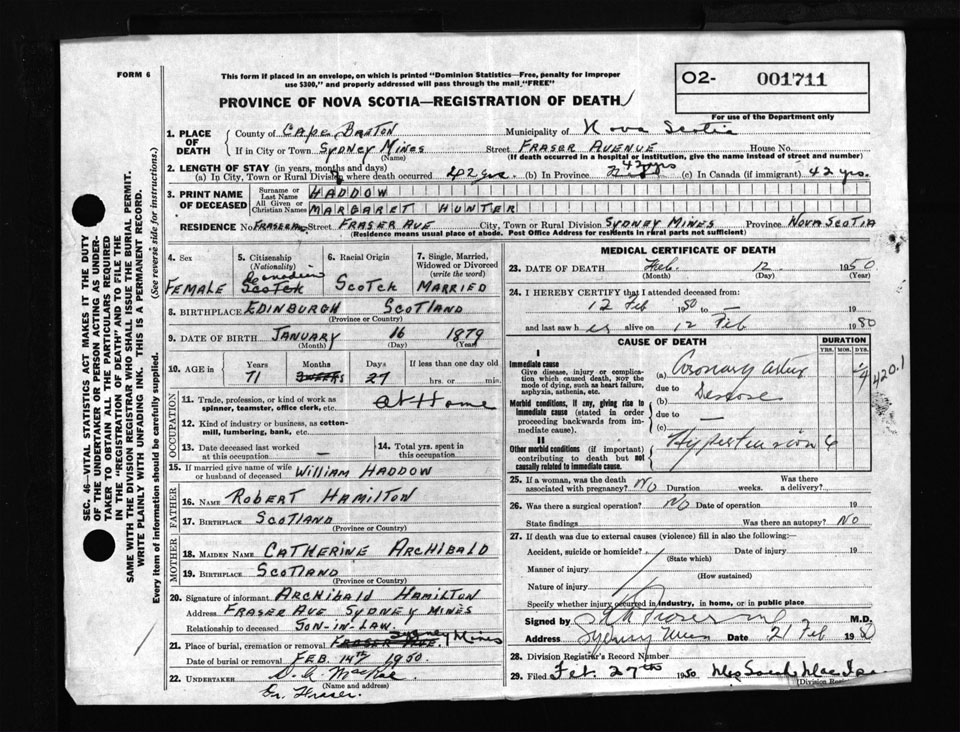 FORM 6
This form if placed in an envelope, on which is printed "Dominion Statistics—Free, penalty for improper
use $300," and properly addressed will pass through the mail "FREE"
PROVINCE OF NOVA SCOTIA—REGISTRATION OF DEATH
O2- 001711
For use of the Department only
SEC. 46—VITAL STATISTICS ACT MAKES IT THE DUTY
OF THE UNDERTAKER OR PERSON ACTING AS UNDER-
TAKER TO OBTAIN ALL THE PARTICULARS REQUIRED
IN THE "REGISTRATION OF DEATH" AND TO FILE THE
SAME WITH THE DIVISION REGISTRAR WHO SHALL ISSUE THE BURIAL PERMIT.
WRITE PLAINLY WITH UNFADING INK. THIS IS A PERMANENT RECORD.
Every item of information should be carefully supplied. (See reverse side for instructions.)
1. PLACE OF DEATH
County of CAPE BRETON Municipality of Nova Scotia
If in City or Town SYDNEY MINES Street FRASER AVENUE House No.
(Name) (If death occurred in a hospital or institution, give the name instead of street and number)
2. LENGTH OF STAY (in years, months and days)
(a) In City, Town or Rural Division where death occurred 42 yrs. (b) In Province 42 yrs (c) In Canada (if immigrant) 42 yrs.
3. PRINT NAME OF DECEASED
Surname or Last Name HADDOW
All Given or Christian Names MARGARET HUNTER
RESIDENCE No. FRASER A Street FRASER AVE City, Town or Rural Division SYDNEY MINES Province NOVA SCOTIA
(Residence means usual place of abode. Post Office Address for residents in rural parts not sufficient)
4. Sex
FEMALE
5. Citizenship
(Nationality)
Canadian
Scotch
6. Racial Origin
SCOTCH
7. Single, Married, Widowed or Divorced
(write the word)
MARRIED
8. BIRTHPLACE EDINBURGH SCOTLAND
(Province or Country)
9. DATE OF BIRTH JANUARY 16 1879
(Month) (Day) (Year)
10. AGE in
Years Months Days If less than one day old
71 27 hrs. or min.
OCCUPATION
11. Trade, profession, or kind of work as
spinner, teamster, office clerk, etc. At Home
12. Kind of industry or business, as cotton-
mill, lumbering, bank, etc.
13. Date deceased last worked
at this occupation —
14. Total yrs. spent in
this occupation
15. If married give name of wife
or husband of deceased WILLIAM HADDOW
FATHER
16. NAME ROBERT HAMILTON
17. BIRTHPLACE SCOTLAND
(Province or Country)
MOTHER
18. MAIDEN NAME CATHERINE ARCHIBALD
19. BIRTHPLACE SCOTLAND
(Province or Country)
20. Signature of informant ARCHIBALD HAMILTON
Address FRASER AVE SYDNEY MINES
Relationship to deceased SON-IN-LAW.
21. Place of burial, cremation or removal FRASER AVE. Sydney Mines
Date of burial or removal FEB 14TH 1950.
22. UNDERTAKER
(Name and address)
MEDICAL CERTIFICATE OF DEATH
23. DATE OF DEATH Feb. 12 1950
(Month) (Day) (Year)
24. I HEREBY CERTIFY that I attended deceased from:
12 Feb 1950 to — 19
and last saw her alive on 12 Feb 1950
CAUSE OF DEATH DURATION
YRS. MOS. DYS.
I
Immediate cause
Give disease, injury or complica-
tion which caused death, NOT the
mode of dying, such as heart failure,
asphyxia, asthenia, etc.
(a) Coronary Artery
due to
Morbid conditions, if any, giving rise to
immediate cause (stated in order
proceeding backwards from im-
mediate cause).
(b) Disease
due to —
(c)
II
Other morbid conditions (if important)
contributing to death but not
causally related to immediate cause.
Hypertension 6
420.1
25. If a woman, was the death
associated with pregnancy? NO Duration weeks. Was there
a delivery?
26. Was there a surgical operation? NO Date of operation 19
State findings Was there an autopsy? No
27. If death was due to external causes (violence) fill in also the following:—
Accident, suicide or homicide? Date of injury 19
(State which)
Manner of injury
(How sustained)
Nature of injury
Specify whether injury occurred in industry, in home, or in public place
Signed by M.D.
Address Sydney Mines Date 21 Feb 1950
28. Division Registrar's Record Number
29. Filed Feb. 27th 1950
(Division Regi